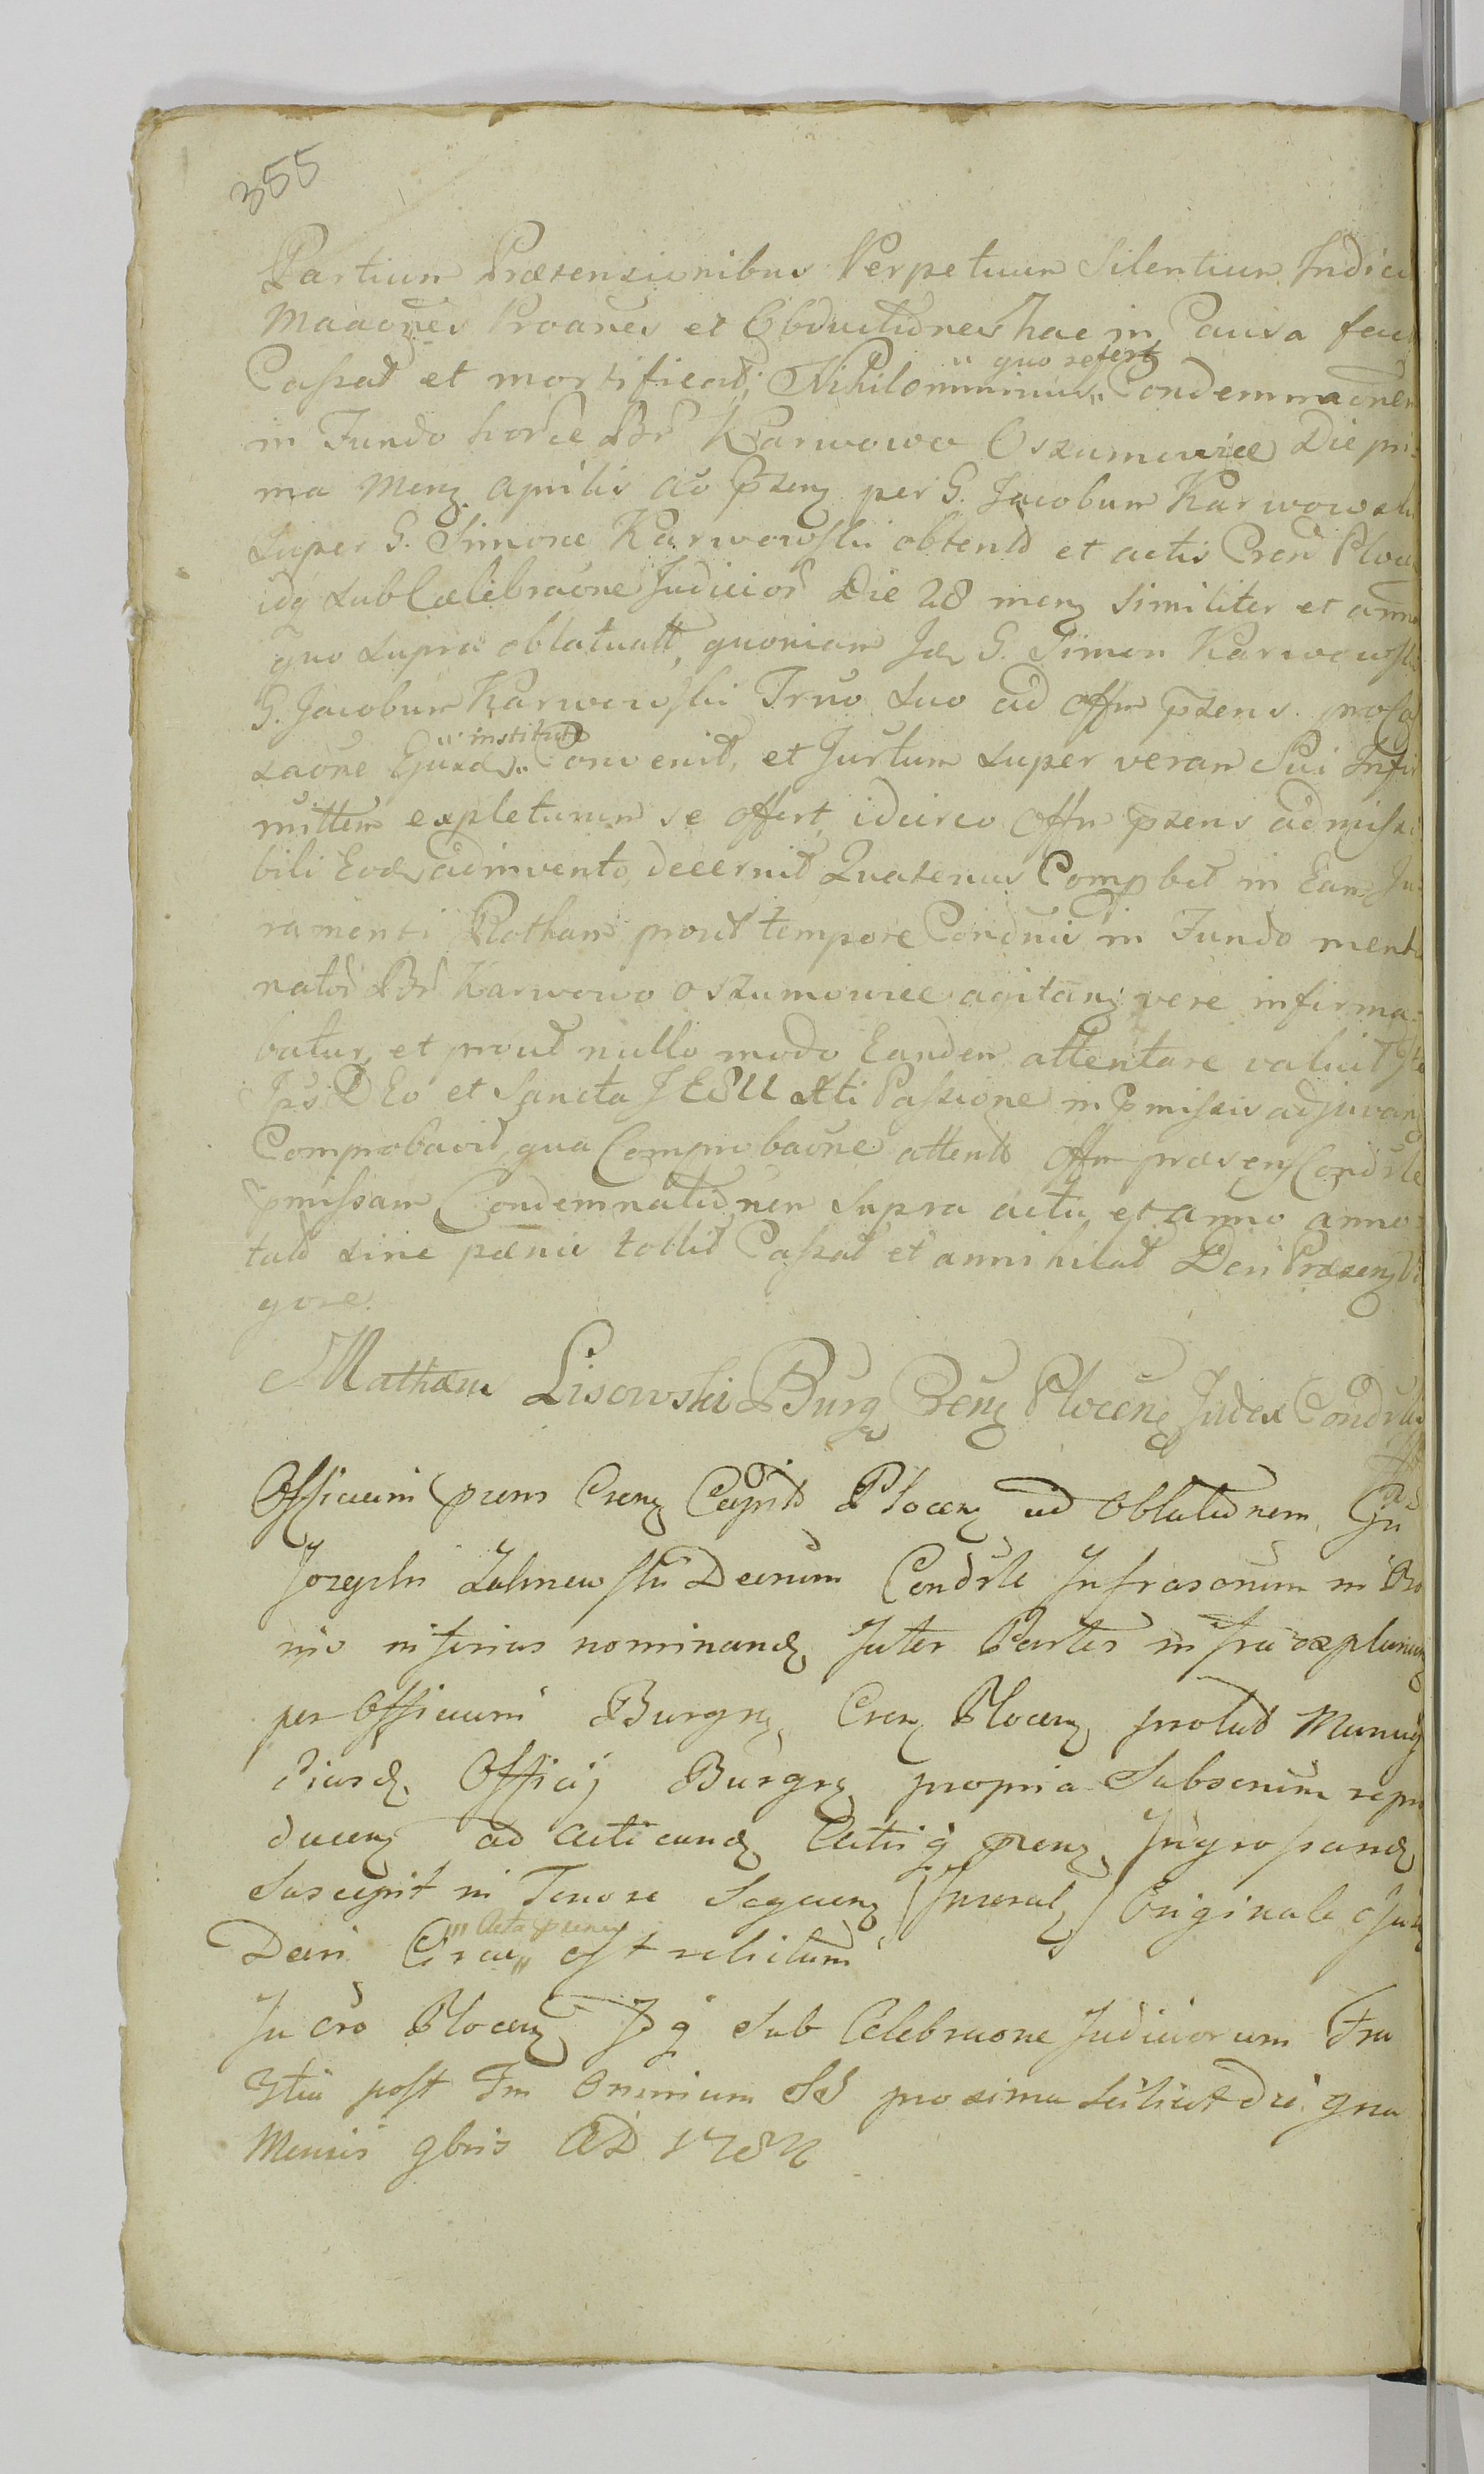 355
Partium Prætensionibus Perpetuum Silentium Indici
Maaones Proanes et Obductiones hac in Causa fact
Cassat et mortificat; Nihilominus „ quo refert „ Condemnaonem
in Fundo horce Br Karwowo Oszumowice Die pri:
ma Mens Aprilis ao prsens per G. Jacobum Karwowski
super G. Simone Karwowski obtent et actis Cren Plocen
idq sub Cælebraone Judicior Die 28 mens similiter et anno
quo supra oblatuatt, quoniam Jdem G. Simon Karwowski
G. Jacobum Karwowski Trno suo ad offm prsens
saone Ejusd „ institut „ Convenit, et Jurtum super veram Sui Infir
mittem expleturum se offert, idcirco offm prsens admissi
bili Eod adinvento, decernit Quatenus Compbet in Eam Ju:
ramenti Rotham prout tempore Condnis in Fundo menti
nator Br Karwowo Oszumowice agitan vere infirma:
batur, et prout nullo modo Eandem attentare valuit Ita
Jps DEo et Sancta JESU Xti Passione in pmissis adjuvan
Comprobavit, qua Comprobaone attenta offm præsens Condrle
pmissam Condemnationem supra actu et anno anno:
tat sine pænis tollit Cassat et annihilat Dcri Præsens Vi
gore.
Mathæus Lisowski Burg Crens Plocens Judex Condrlis
Officium prens Crens Capit Plocens ad Oblationem Gu
Josephi Decrum Condrle Infrascrium in Bo
nis inferius nominand Inter Partes infra explanan
per Officium Burgrs Crens Plocens prolat Manuq
ejusd Officij Burgrs propria Subscrium repro
ducens ad acticand Actisq prens Ingrossand
Suscepit in Tenore Sequens Originale ejusd
Dcri Circa „ Acta prens „ est relictum
In Cro Plocens Idq Sub Celebraone Judiciorum Fra
3tia post Fm Omnium SS proxima scilicet die 9na
Mensis 9bris AD 178